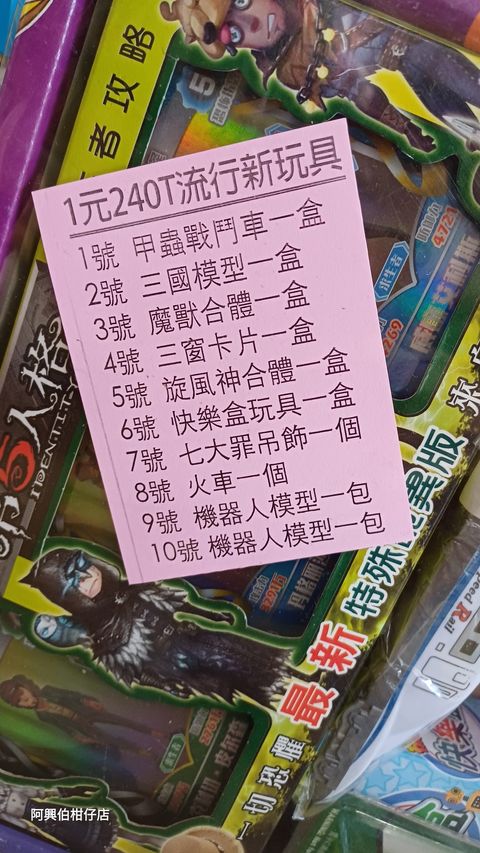 1元240T流行新玩具
1號 甲蟲戰鬥車一盒
2號 三國模型一盒
3號 魔獸合體一盒
4號 三窗卡片一盒
5號 旋風神合體一盒
6號 快樂盒玩具一盒
7號 七大罪吊飾一個
8號 火車一個
9號 機器人模型一包
10號 機器人模型一包
者攻略
5
求生者
4721
第5人格
IDENTITY
最新特殊 異版
一切恐懼
來自
eed Rail
快樂
阿興伯柑仔店